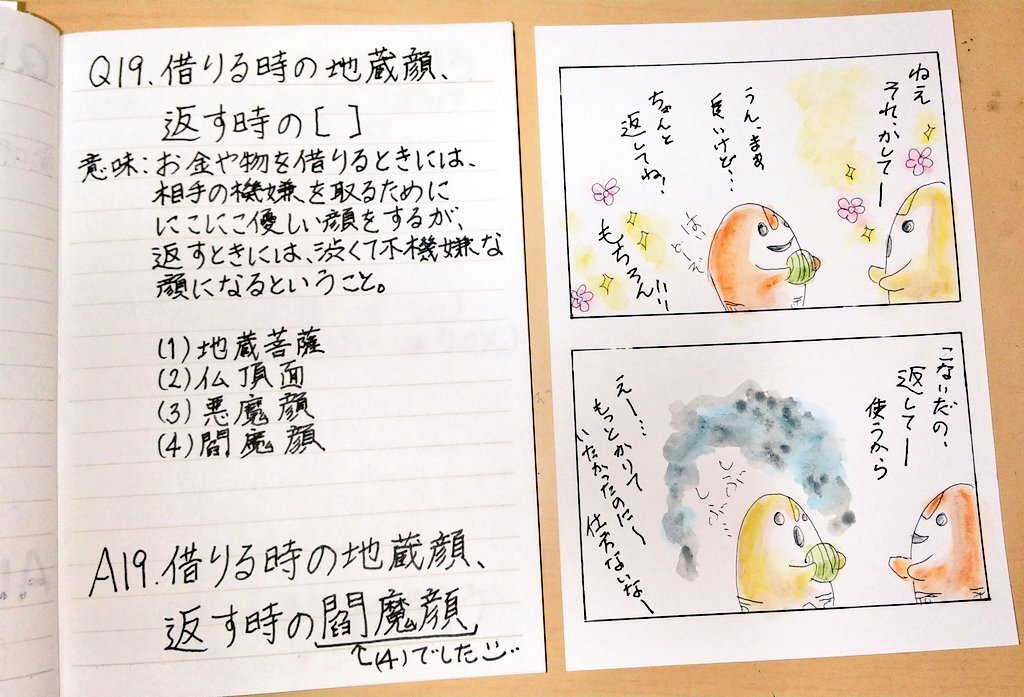 Q19.借りる時の地蔵顔、
返す時の[ ]
意味:お金や物を借りるときには、
相手の機嫌を取るために
にこにこ優しい顔をするが、
返すときには、渋くて不機嫌な
顔になるということ。
(1)地蔵菩薩
(2)仏頂面
(3)悪魔顔
(4)閻魔顔
A19.借りる時の地蔵顔、
返す時の閻魔顔
↑(4)でした
ねえ
それ、かしてー
うん、まあ
良いけど…
ちゃんと
返してね!
はい
どうぞ
もちろん!!
こないだの、
返してー
使うから
しぶ
しぶ…
えー…
もっとかりて
いたかったのに〜
仕方ないなー